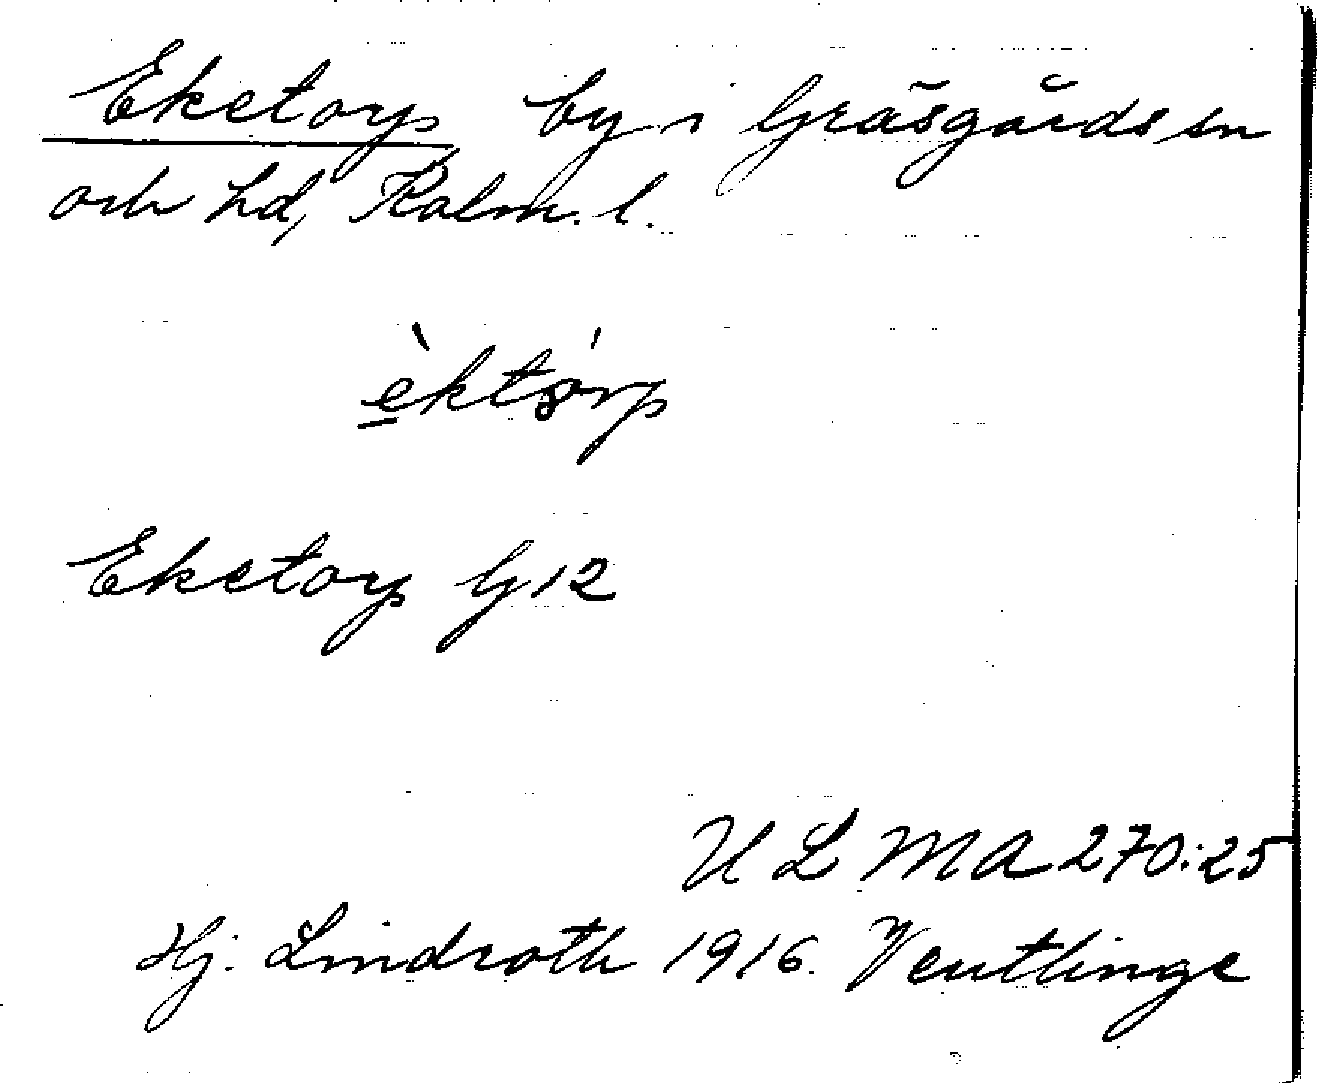 Eketorp by i Gräsgårds sn
och hd, Kalm. l.
èktórp
Eketorp G12
ULMA 270:25
Hj. Lindroth 1916. Ventlinge